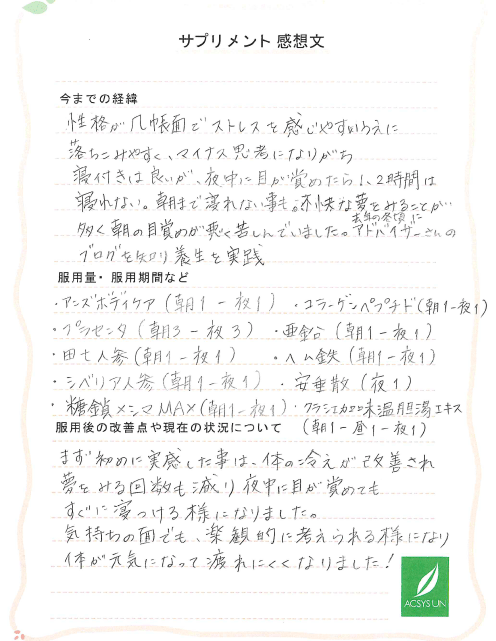 サプリメント 感想文
今までの経緯
性格が几帳面でストレスを感じやすいうえに
落ちこみやすく、マイナス思考になりがち
寝付きは良いが、夜中に目が覚めたら1、2時間は
寝れない。朝まで寝れない事も。不快な夢をみることが
多く朝の目覚めが悪く苦しんでいました。去年の冬頃にアドバイザーさんの
ブログを知り養生を実践
服用量・服用期間など
・アンズボディケア(朝1-夜1) ・コラーゲンペプチド(朝1-夜1)
・プラセンタ(朝3-夜3) ・亜鉛(朝1-夜1)
・田七人参(朝1-夜1) ・ヘム鉄(朝1-夜1)
・シベリア人参(朝1-夜1) ・安垂散(夜1)
・糖鎖メシマMAX(朝1-夜1)・クラシエ加味温胆湯エキス
(朝1-昼1-夜1)
服用後の改善点や現在の状況について
まず初めに実感した事は、体の冷えが改善され
夢をみる回数も減り夜中に目が覚めても
すぐに寝つける様になりました。
気持ちの面でも、楽観的に考えられる様になり
体が元気になって疲れにくくなりました!
ACSYSUN